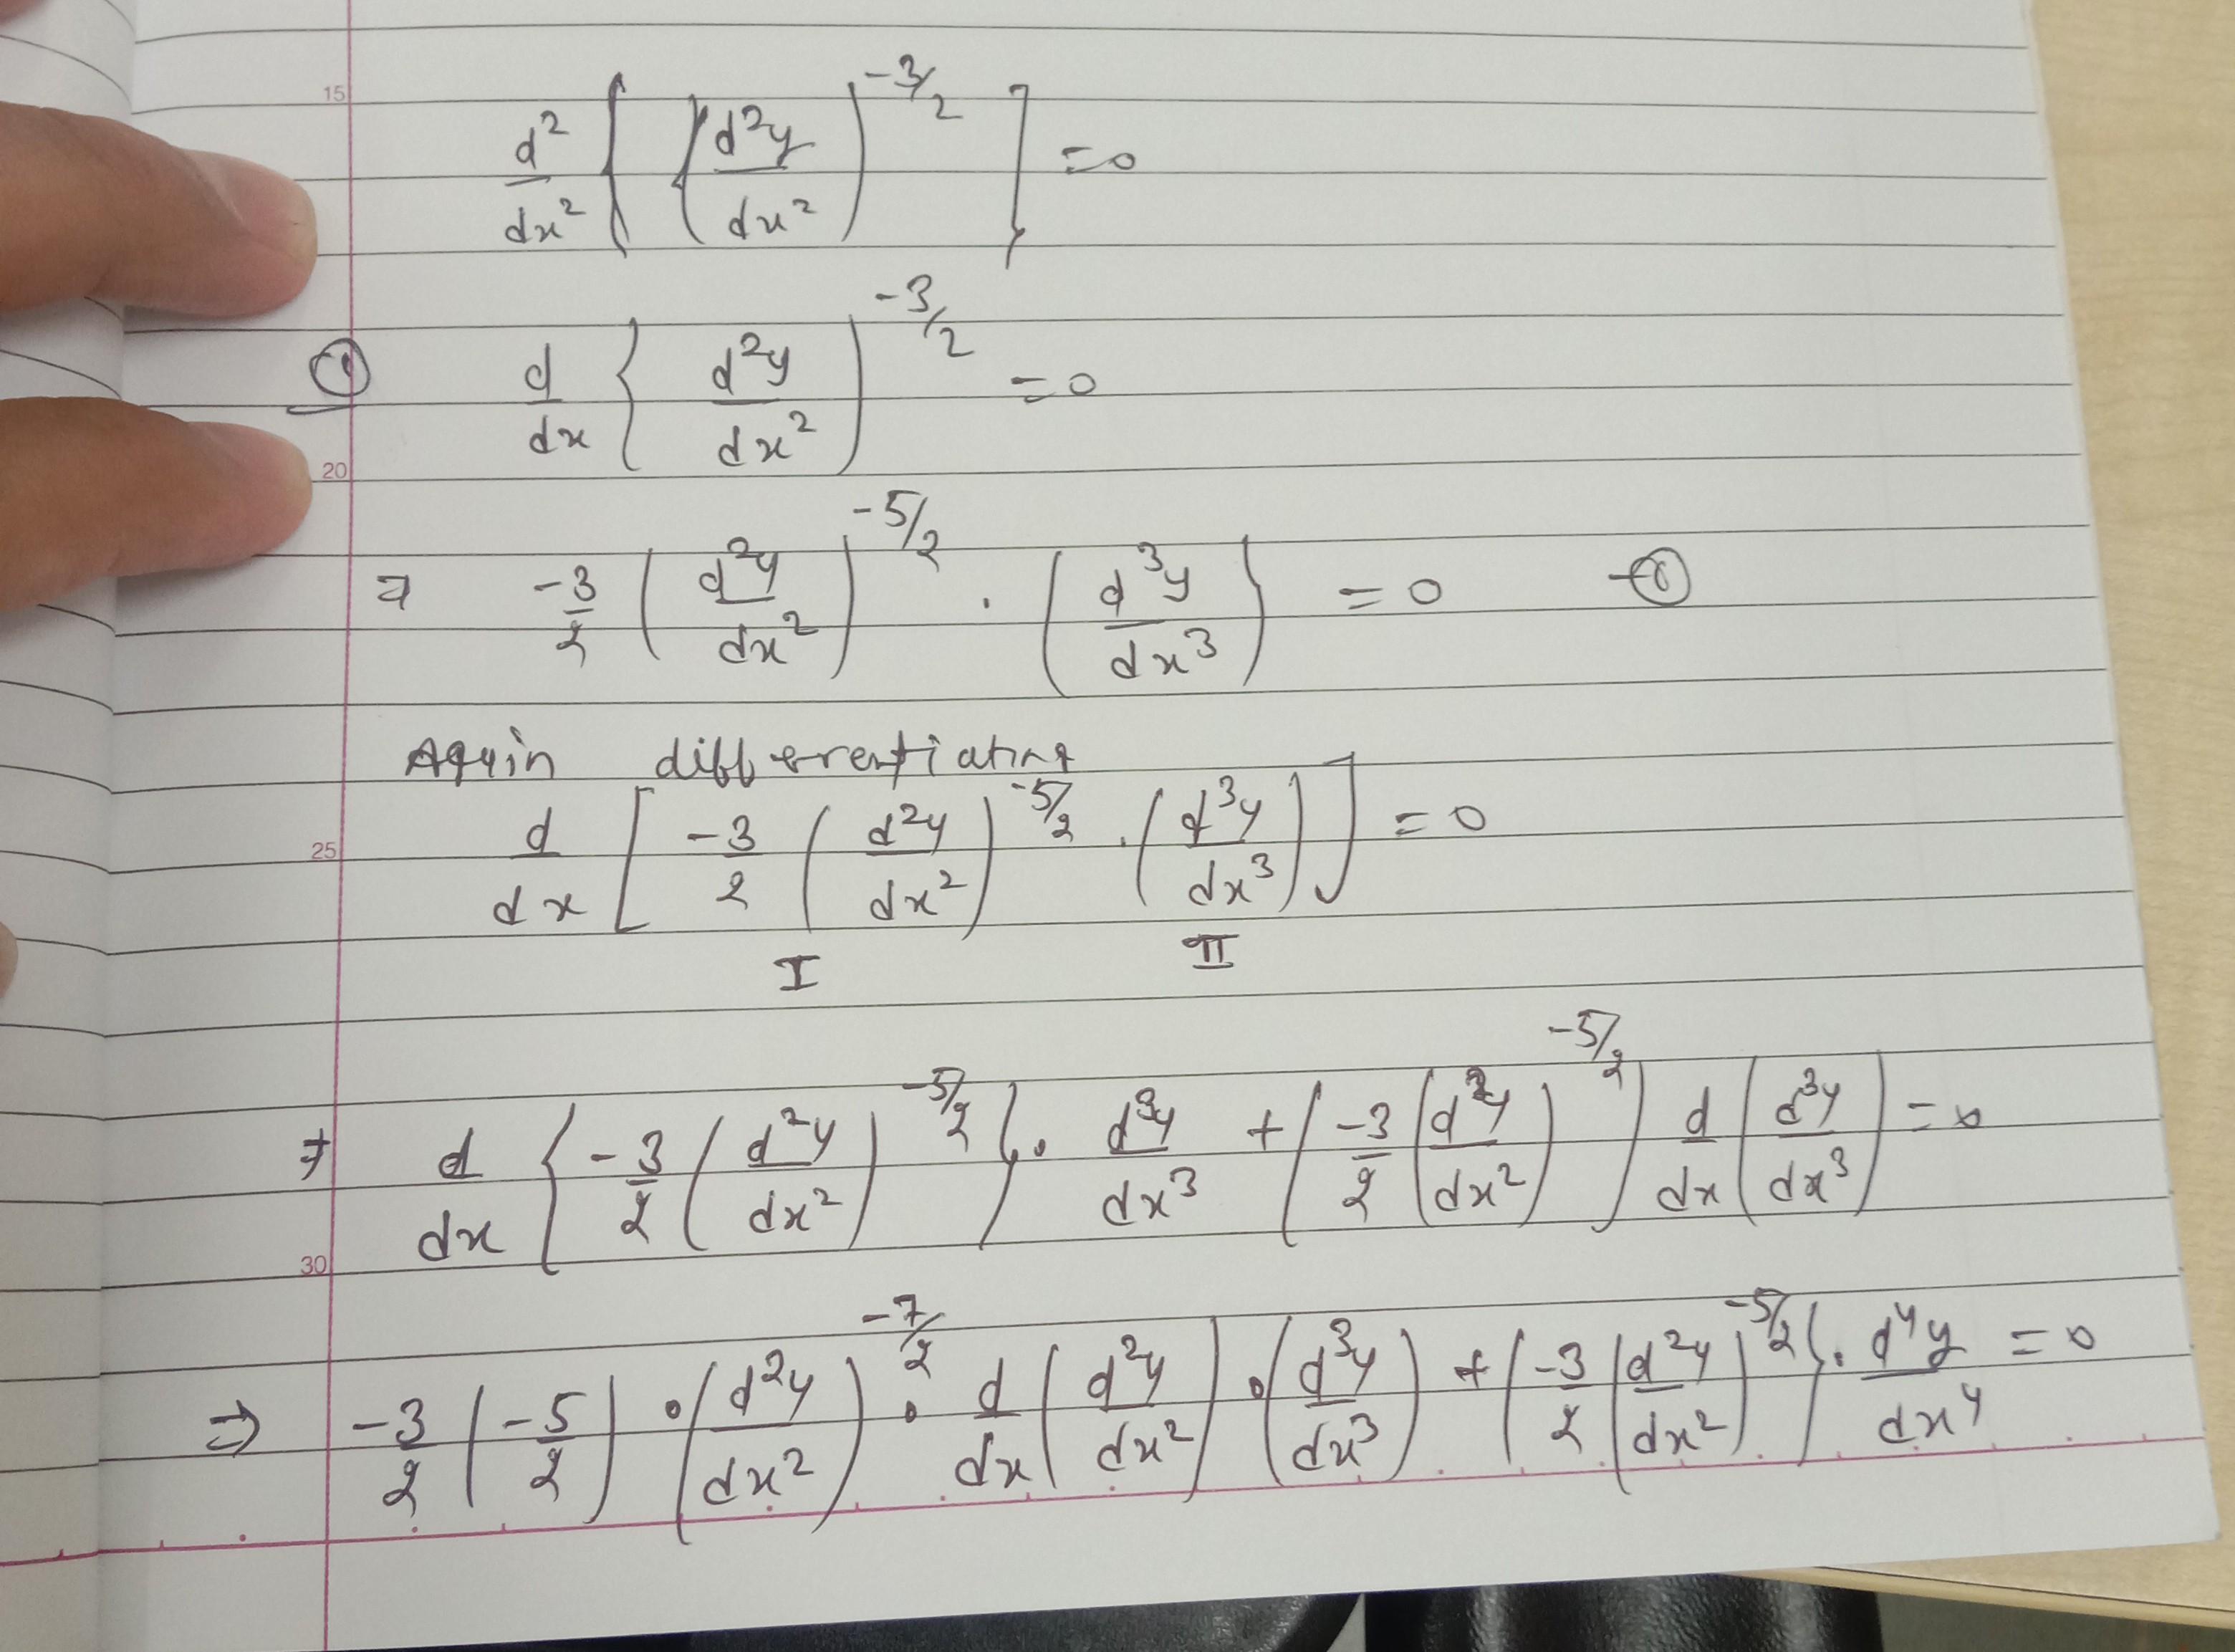 15
d²/dx² { (d²y/dx²)^(-3/2) ] = 0
① d/dx { d²y/dx² )^(-3/2) = 0
20
⇒ -3/2 (d²y/dx²)^(-5/2) · (d³y/dx³) = 0 —①
Again differentiating
25
d/dx [ -3/2 (d²y/dx²)^(-5/2) · (d³y/dx³) ] = 0
I II
⇒ d/dx { -3/2 (d²y/dx²)^(-5/2) } · d³y/dx³ + ( -3/2 (d²y/dx²)^(-5/2) ) d/dx (d³y/dx³) = 0
30
⇒ -3/2 (-5/2) · (d²y/dx²)^(-7/2) · d/dx (d²y/dx²) · (d³y/dx³) + ( -3/2 (d²y/dx²)^(-5/2) ) · d⁴y/dx⁴ = 0